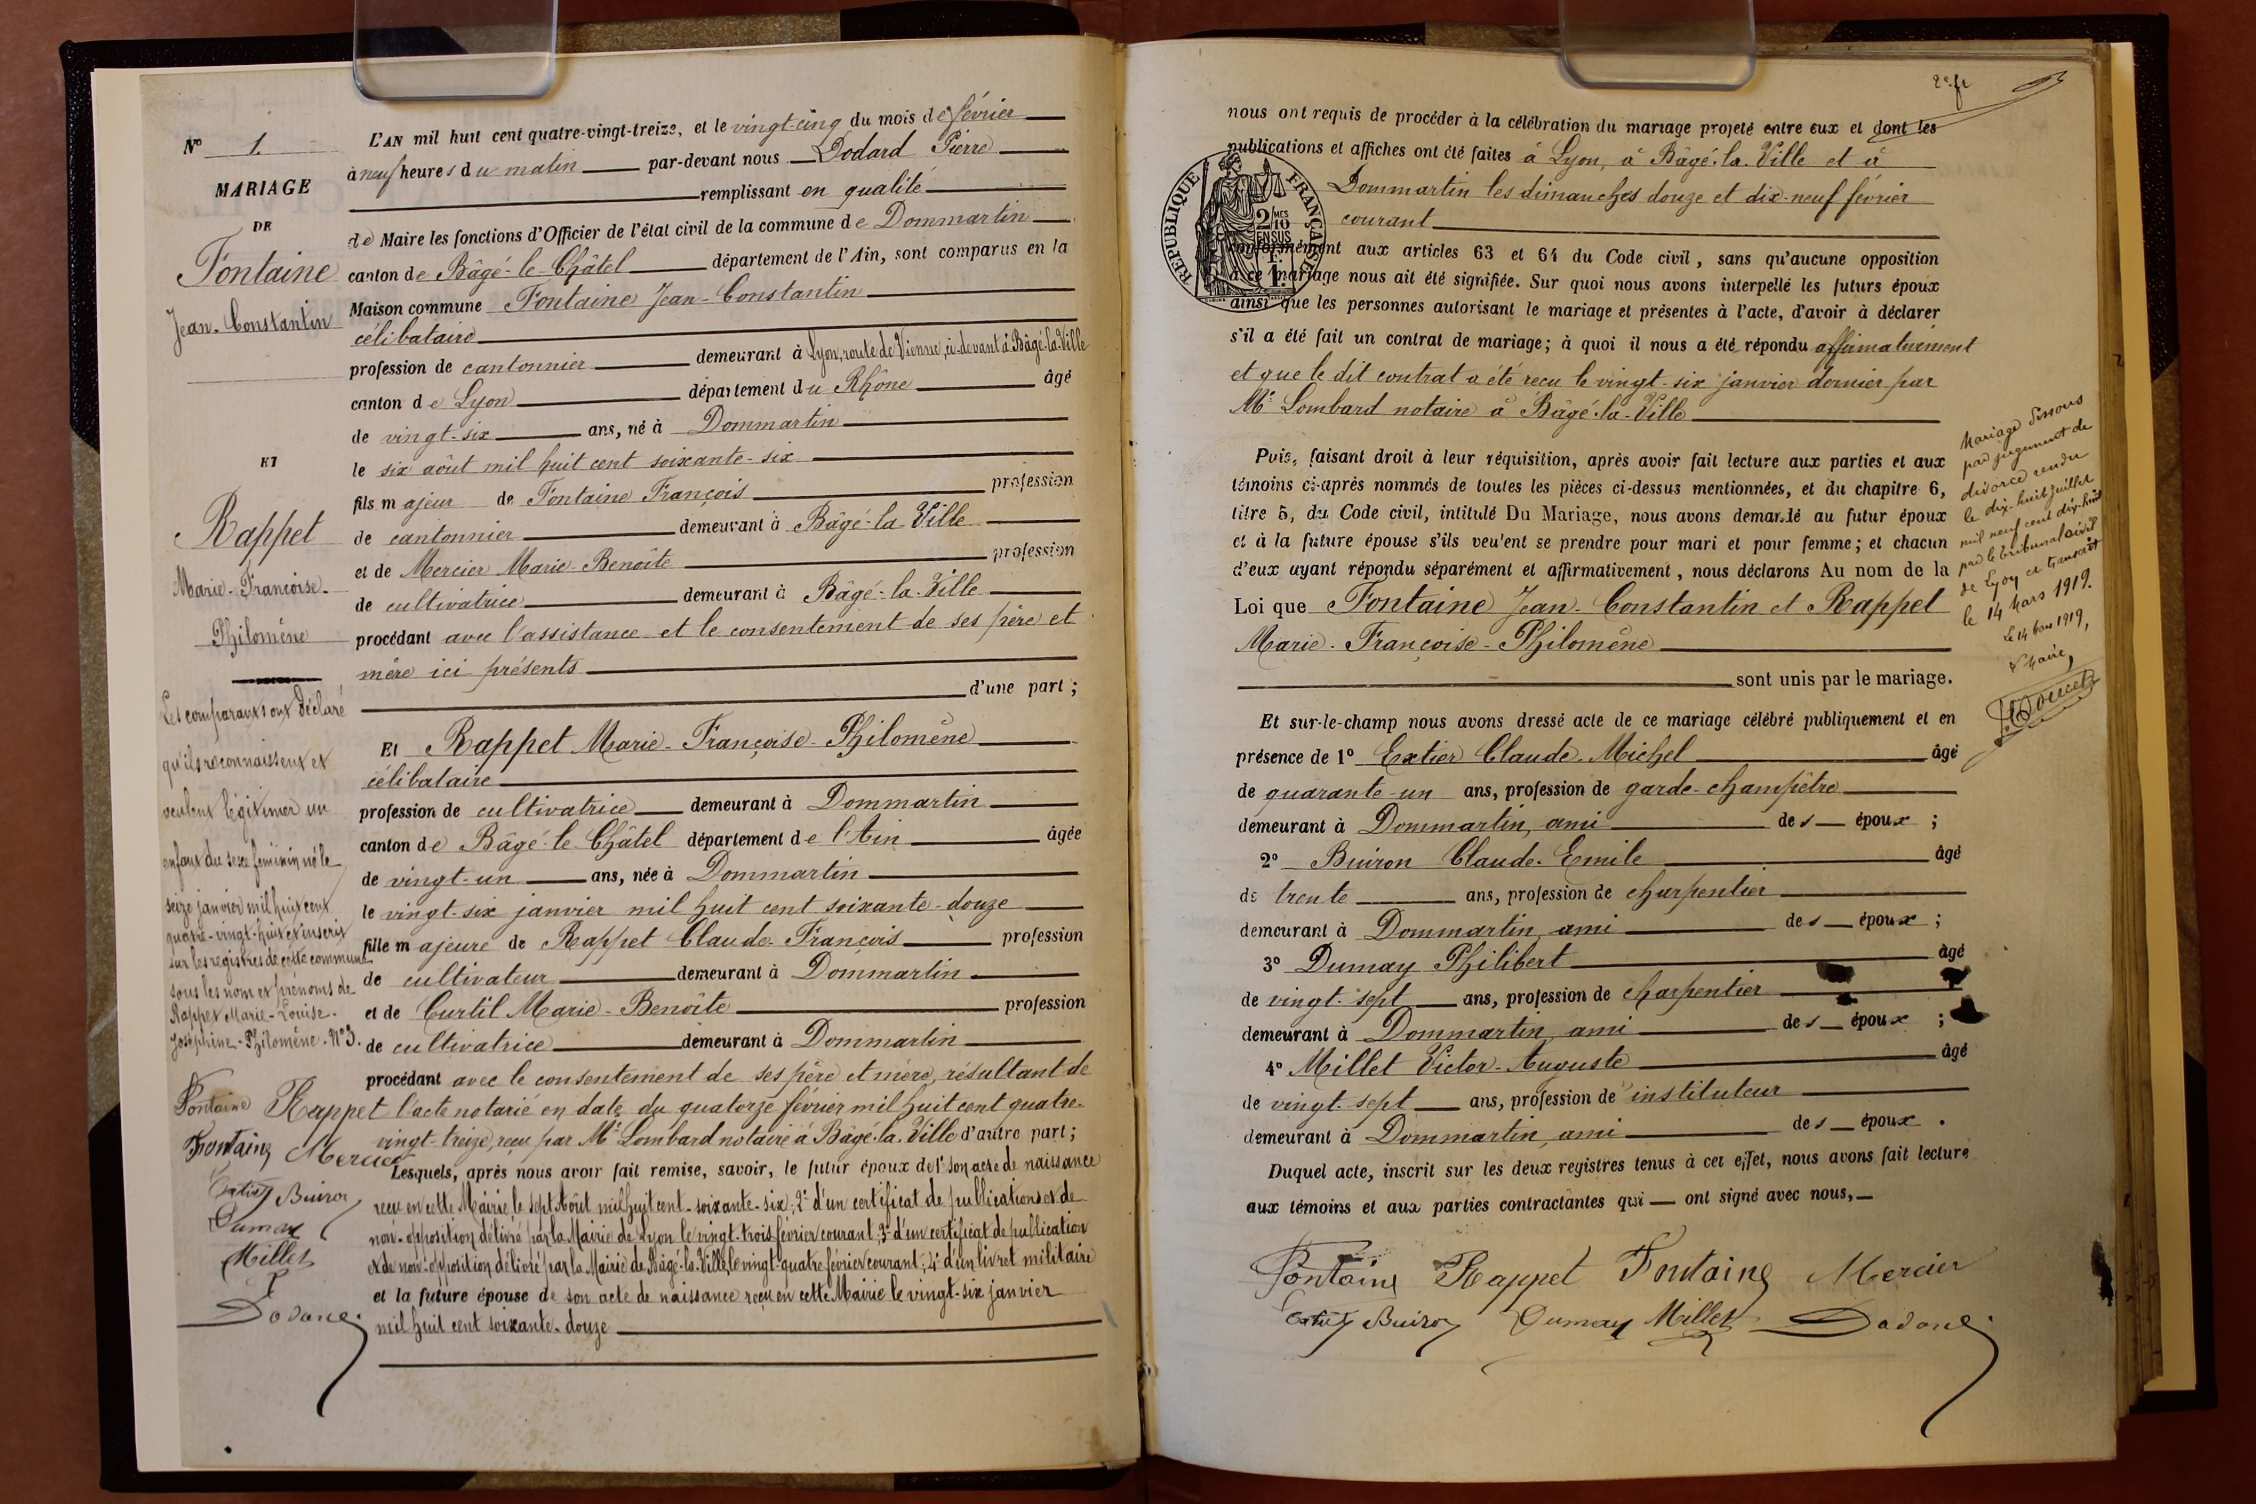 N° 1.
MARIAGE
DE
Fontaine
Jean-Constantin
ET
Rappet
Marie-Françoise-
Philomène
Les comparants ont déclaré
qu'ils reconnaissent et
veulent légitimer un
enfant du sexe féminin né le
seize janvier mil huit cent
quatre-vingt-huit et inscrit
sur les registres de cette commune
sous les nom et prénoms de
Rappet Marie-Louise-
Joséphine-Philomène. N°3.
Fontaine Rappet
Fontaine Mercier
Extier Buiron
Dumay
Millet
L'AN mil huit cent quatre-vingt-treize, et le vingt-cinq du mois de février
à neuf heures du matin par-devant nous Dodard Pierre
remplissant en qualité
de Maire les fonctions d'Officier de l'état civil de la commune de Dommartin
canton de Bâgé-le-Châtel département de l'Ain, sont comparus en la
Maison commune Fontaine Jean-Constantin
célibataire
profession de cantonnier demeurant à Lyon, route de Vienne, ci-devant à Bâgé-la-Ville
canton de Lyon département du Rhône âgé
de vingt-six ans, né à Dommartin
le six août mil huit cent soixante-six
fils majeur de Fontaine François profession
de cantonnier demeurant à Bâgé-la-Ville
et de Mercier Marie-Benoîte profession
de cultivatrice demeurant à Bâgé-la-Ville
procédant avec l'assistance et le consentement de ses père et
mère ici présents
d'une part;
Et Rappet Marie-Françoise-Philomène
célibataire
profession de cultivatrice demeurant à Dommartin
canton de Bâgé-le-Châtel département de l'Ain âgée
de vingt-un ans, née à Dommartin
le vingt-six janvier mil huit cent soixante-douze
fille majeure de Rappet Claude-François profession
de cultivateur demeurant à Dommartin
et de Curtil Marie-Benoîte profession
de cultivatrice demeurant à Dommartin
procédant avec le consentement de ses père et mère, résultant de
l'acte notarié en date du quatorze février mil huit cent quatre-
vingt-treize, reçu par Me Lombard notaire à Bâgé-la-Ville d'autre part;
Lesquels, après nous avoir fait remise, savoir, le futur époux de 1° son acte de naissance
reçu en cette Mairie le sept Août mil huit cent-soixante-six; 2° d'un certificat de publications et de
non-opposition délivré par la Mairie de Lyon le vingt-trois février courant; 3° d'un certificat de publication
et de non-opposition délivré par la Mairie de Bâgé-la-Ville, le vingt-quatre février courant; 4° d'un livret militaire
et la future épouse de son acte de naissance reçu en cette Mairie le vingt-six janvier
mil huit cent soixante-douze
nous ont requis de procéder à la célébration du mariage projeté entre eux et dont les
publications et affiches ont été faites à Lyon, à Bâgé-la-Ville et à
Dommartin les dimanches douze et dix-neuf février
courant
conformément aux articles 63 et 64 du Code civil, sans qu'aucune opposition
à ce mariage nous ait été signifiée. Sur quoi nous avons interpellé les futurs époux
ainsi que les personnes autorisant le mariage et présentes à l'acte, d'avoir à déclarer
s'il a été fait un contrat de mariage; à quoi il nous a été répondu affirmativement
et que le dit contrat a été reçu le vingt-six janvier dernier par
Me Lombard notaire à Bâgé-la-Ville
RÉPUBLIQUE FRANÇAISE
2/10 MES
EN SUS
1F.
Puis, faisant droit à leur réquisition, après avoir fait lecture aux parties et aux
témoins ci-après nommés de toutes les pièces ci-dessus mentionnées, et du chapitre 6,
titre 5, du Code civil, intitulé Du Mariage, nous avons demandé au futur époux
et à la future épouse s'ils veulent se prendre pour mari et pour femme; et chacun
d'eux ayant répondu séparément et affirmativement, nous déclarons Au nom de la
Loi que Fontaine Jean-Constantin et Rappet
Marie-Françoise-Philomène
sont unis par le mariage.
Et sur-le-champ nous avons dressé acte de ce mariage célébré publiquement et en
présence de 1° Extier Claude-Michel âgé
de quarante-un ans, profession de garde-champêtre
demeurant à Dommartin, ami des époux;
2° Buiron Claude-Emile âgé
de trente ans, profession de charpentier
demeurant à Dommartin ami des époux;
3° Dumay Philibert âgé
de vingt-sept ans, profession de charpentier
demeurant à Dommartin, ami des époux;
4° Millet Victor-Auguste âgé
de vingt-sept ans, profession de instituteur
demeurant à Dommartin ami des époux.
Duquel acte, inscrit sur les deux registres tenus à cet effet, nous avons fait lecture
aux témoins et aux parties contractantes qui ont signé avec nous,
Fontaine Rappet Fontaine Mercier
Extier Buiron Dumay Millet
Mariage dissous
par jugement de
divorce rendu
le dix-huit juillet
mil neuf cent dix-huit
par le tribunal civil
de Lyon et transcrit
le 14 Mars 1919.
Le 14 Mars 1919,
Le Maire,